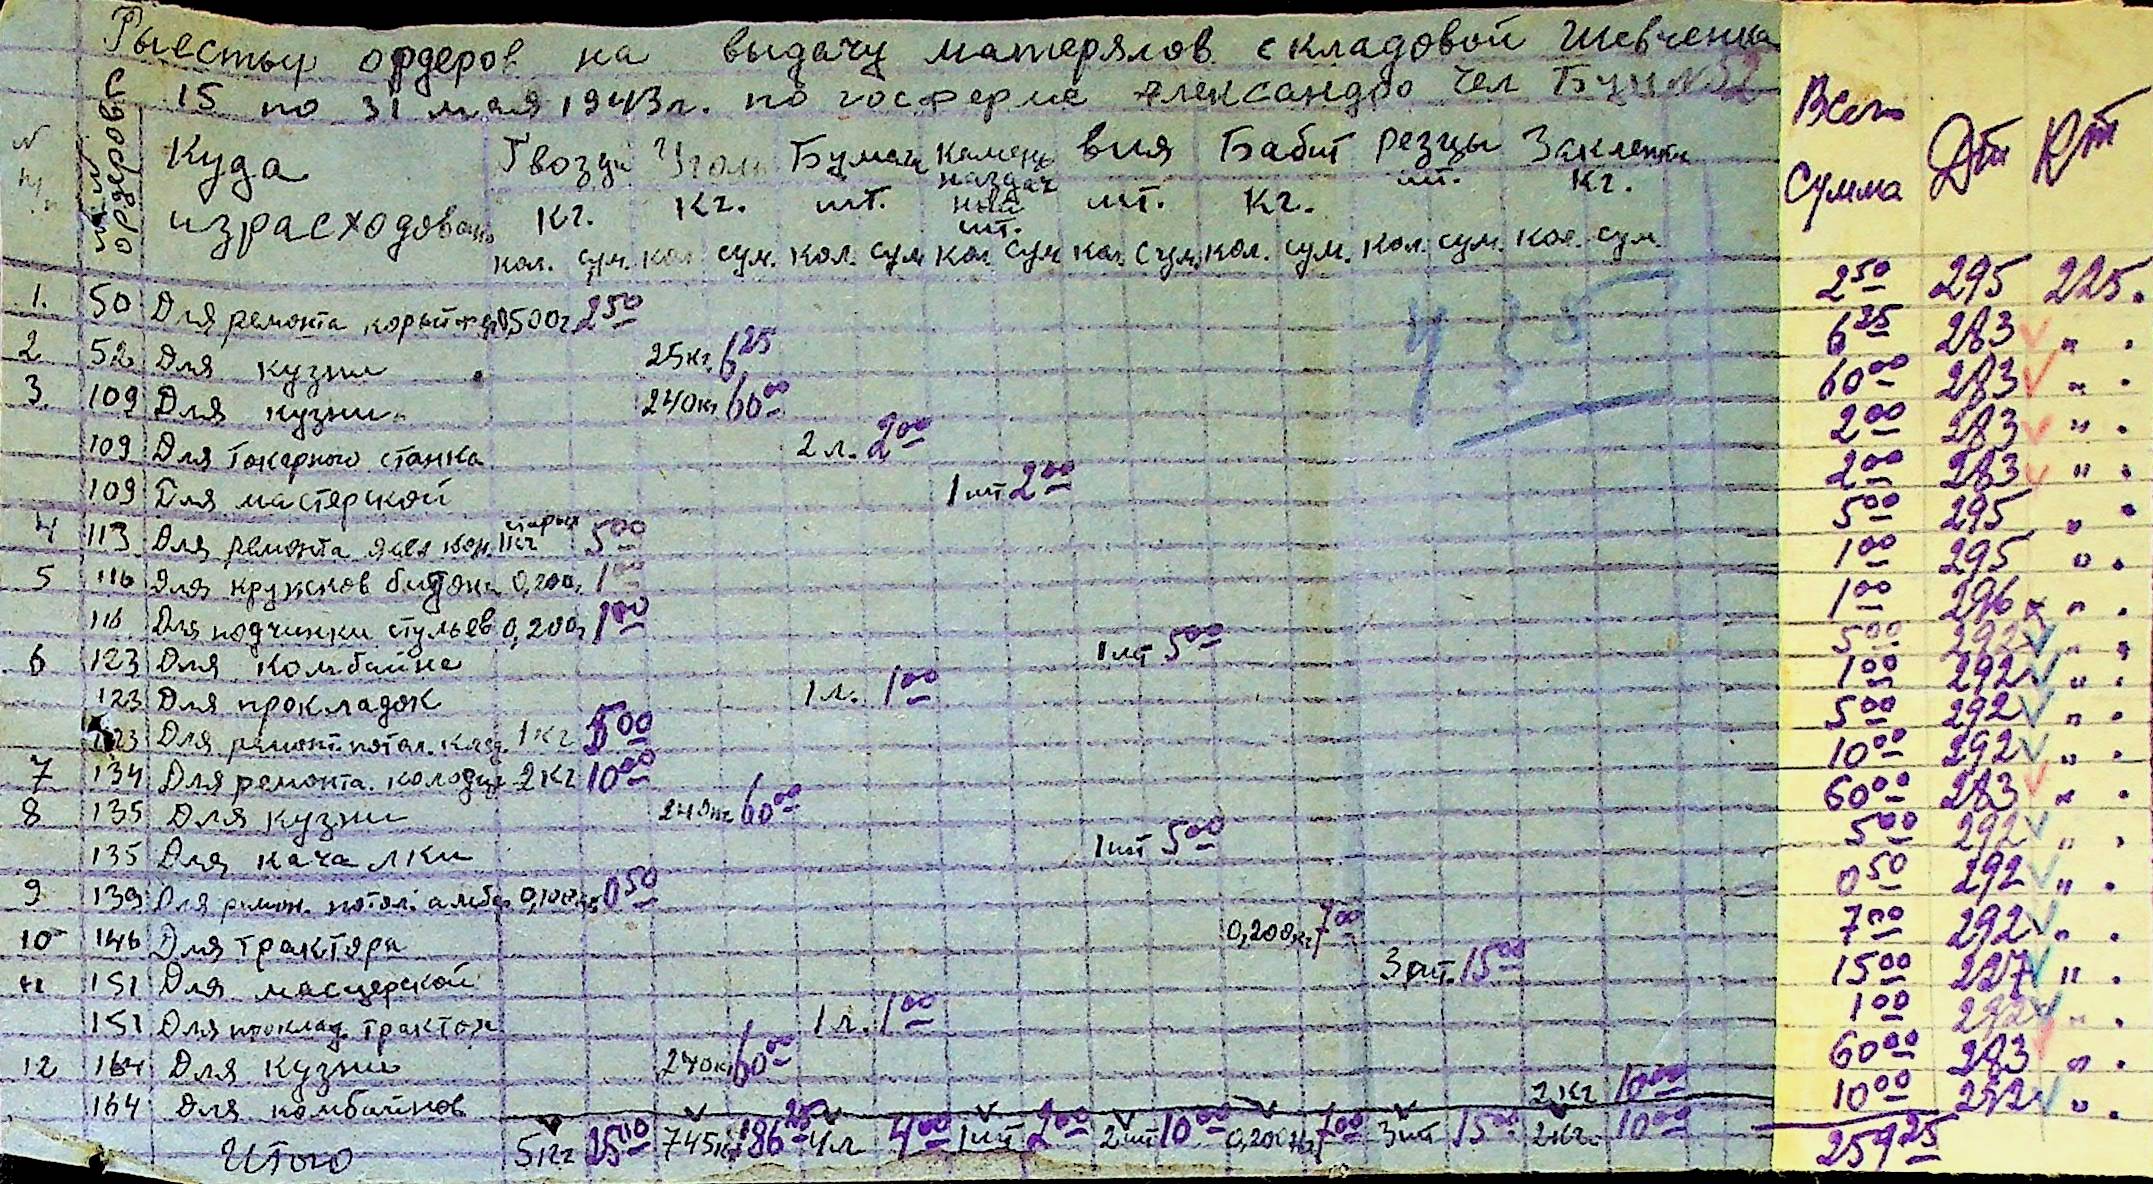 Рыестыр ордеров на выдачу матерялов с кладовой Шевченка
15 по 31 мая 1943 г. по госферме Александро
N п/п
NN ордеров
Куда израсходовано
Гвозди кг.
Уголь кг.
Бумаги шт.
Камень наздачный шт.
шт.
Бабит кг.
резцы шт.
Заклепки кг.
Всего сумма Дт Кт
кол. сум. кол. сум. кол. сум. кол. сум. кол. сум. кол. сум. кол. сум. кол. сум.
435
1. 50 Для ремонта 0,500 г. 2 50 2 50 295 225.
2 52 Для кузни 25 кг. 6 25 6 25 283 " .
3 109 Для кузни. 240 кг 60 00 60 00 283 " .
109 Для токарного станка 2 л. 2 00 2 00 283 " .
109 Для мастерской 1 шт 2 00 2 00 283 " .
4 113 Для ремонта старых 1 кг 5 00 5 00 295 " .
5 116 Для 0,200г. 1 00 1 00 295 " .
116 Для подчинки стульев 0,200г 1 00 1 00 296 " .
6 123 Для комбайна 1 шт 5 00 5 00 292 " .
123 Для прокладок 1 л. 1 00 1 00 292 " .
123 Для ремонт. потол. клад. 1 кг 5 00 5 00 292 " .
7 134 Для ремонта. колодца 2 кг 10 00 10 00 292 " .
8 135 Для кузни 240 кг 60 00 60 00 283 " .
135 Для качалки 1 шт 5 00 5 00 292 " .
9 139 Для ремон. потол. амбар 0,100 0 50 0 50 292 " .
10 146 Для трактора 0,200 кг 7 00 7 00 292 " .
11 151 Для масцерской 3 шт. 15 00 15 00 227 " .
151 Для проклад. трактора 1 л. 1 00 1 00 292 " .
12 164 Для кузни 240 кг 60 00 60 00 283 " .
164 Для комбайнов 2 кг 10 00 10 00 292 " .
Итого 5 кг 25 00 745 кг 186 25 4 л 4 00 1 шт 2 00 2 шт 10 00 0,200 кг 7 00 3 шт 15 00 2 кг. 10 00 259 25